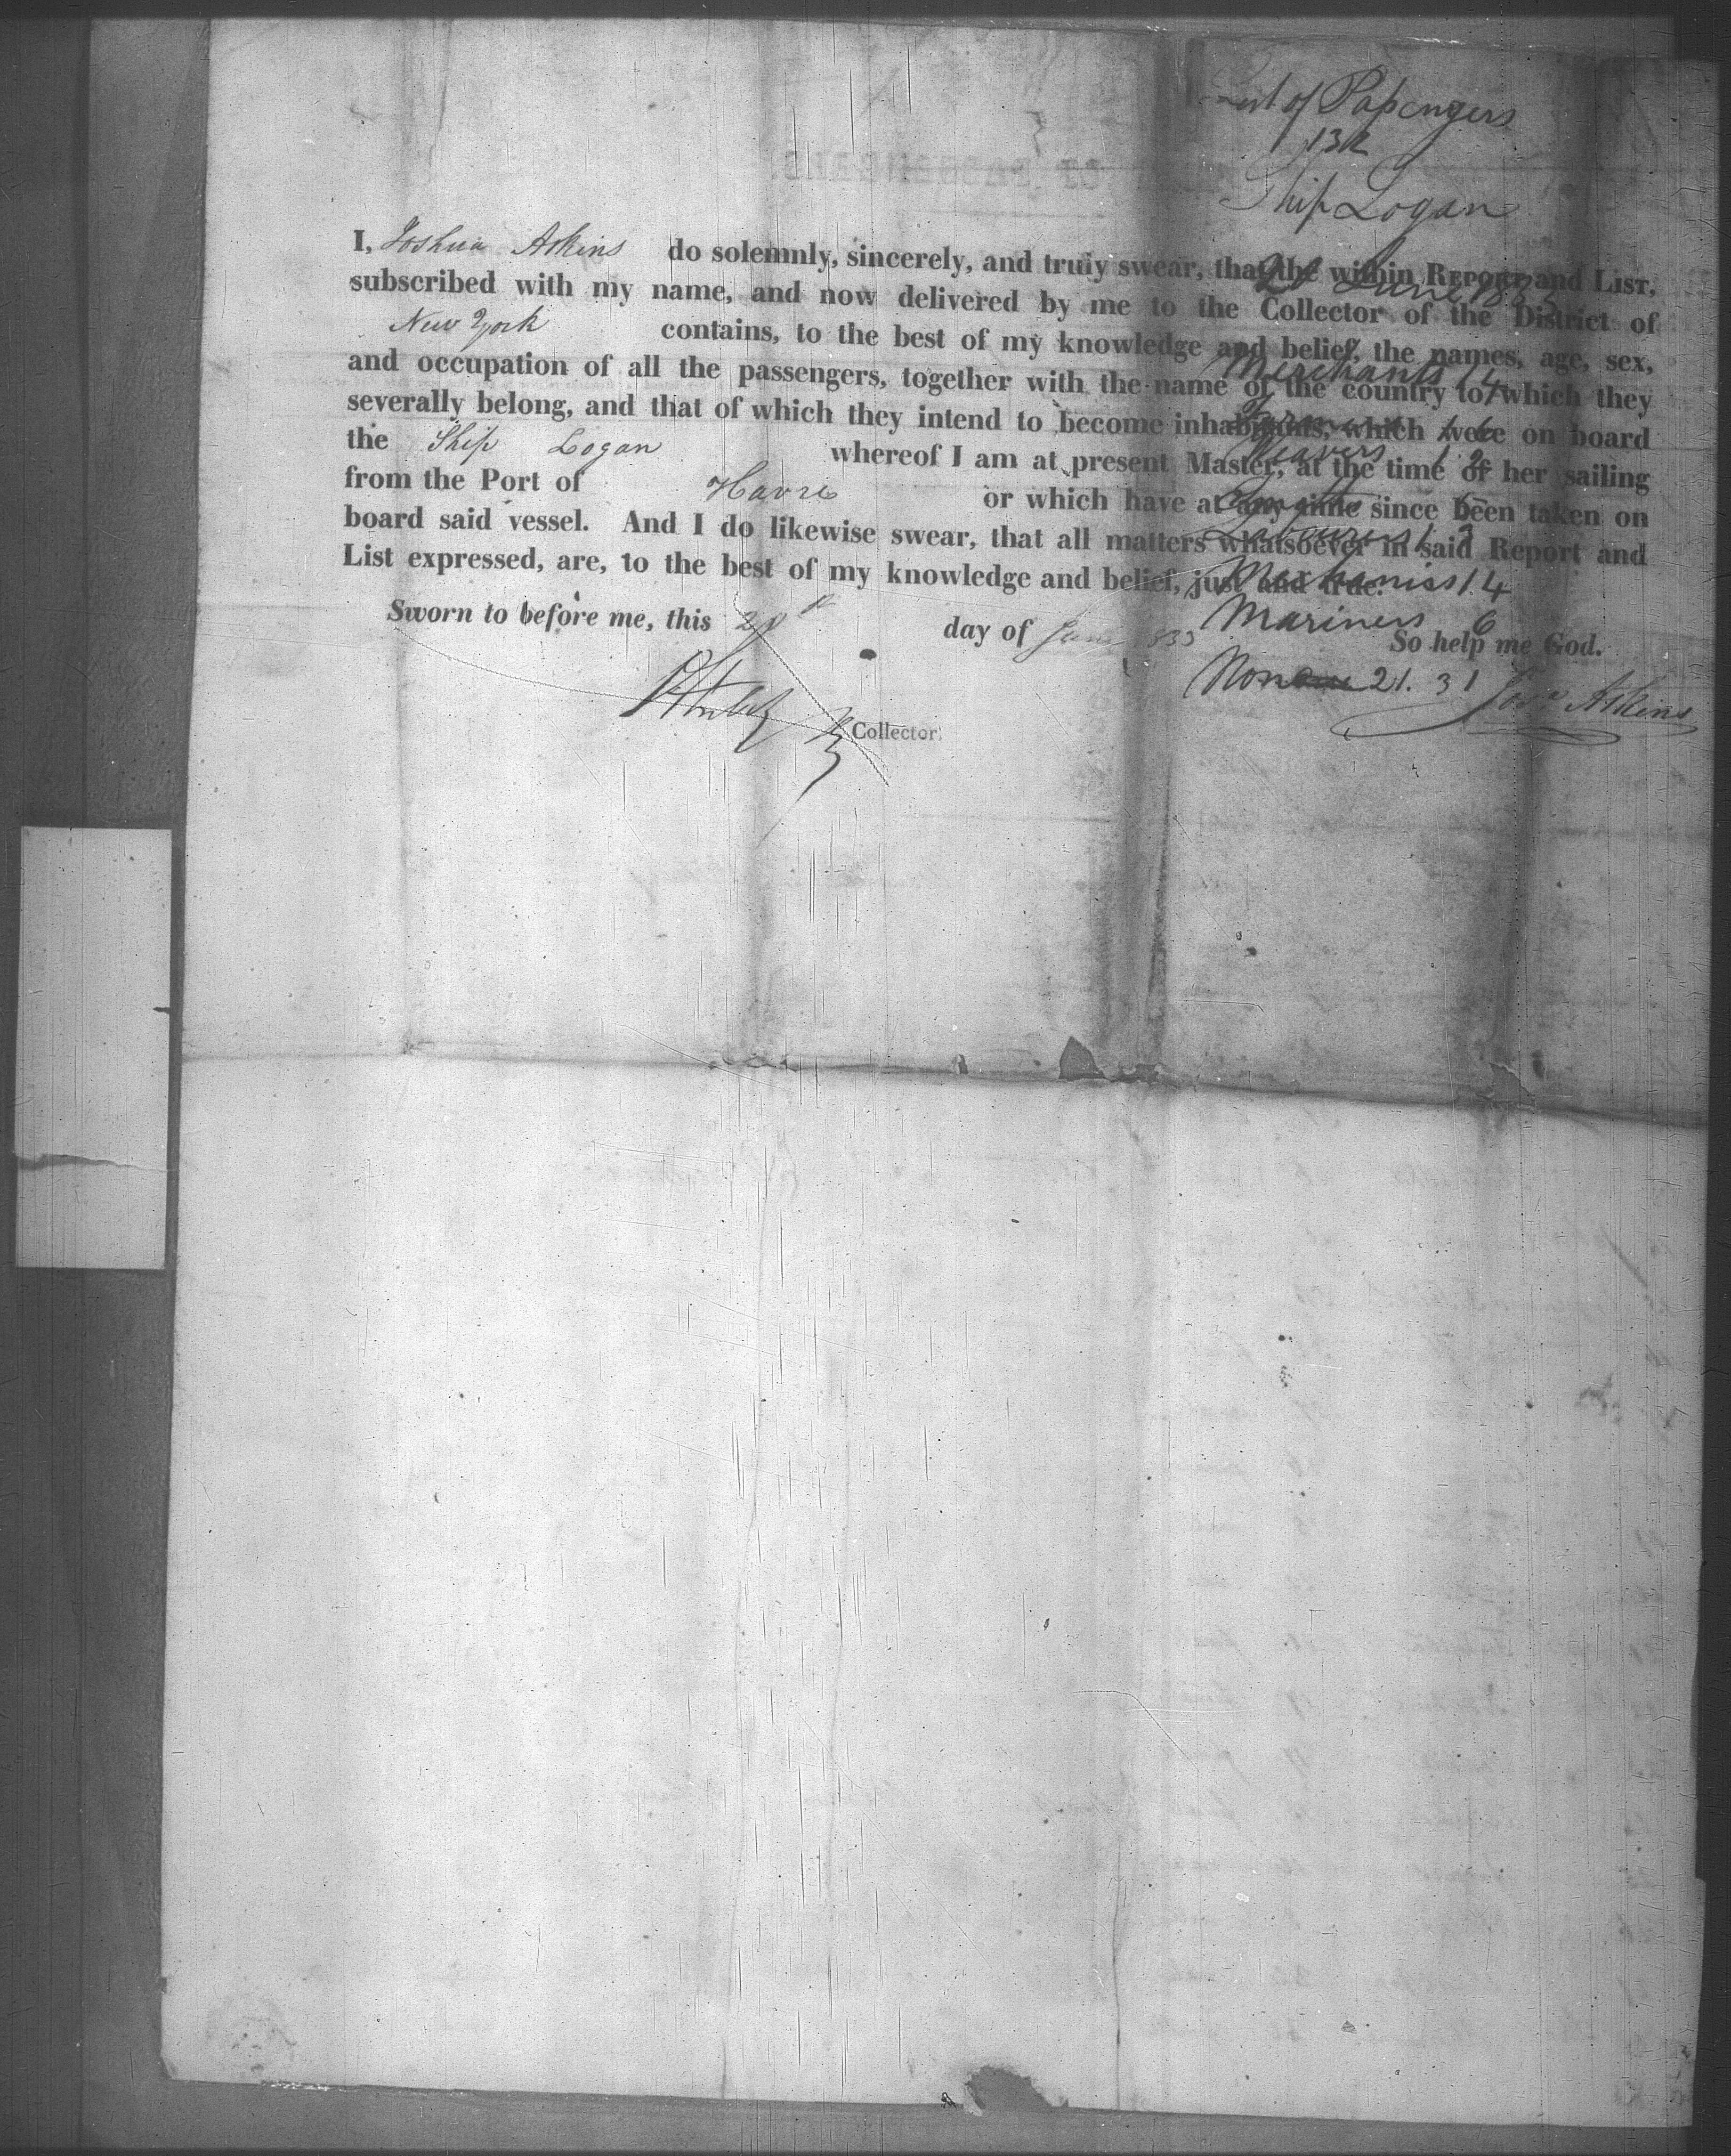 of Passengers
132
Ship Logan
20 June 1833
Merchants 14
Weavers 1 2
Labourers 1 3
Mechanics 14
Mariners 6
None 21. 31
I, Joshua Atkins do solemnly, sincerely, and truly swear, that the within REPORT and LIST,
subscribed with my name, and now delivered by me to the Collector of the District of
New York contains, to the best of my knowledge and belief, the names, age, sex,
and occupation of all the passengers, together with the name of the country to which they
severally belong, and that of which they intend to become inhabitants, which were on board
the Ship Logan whereof I am at present Master, at the time of her sailing
from the Port of Havre or which have at any time since been taken on
board said vessel. And I do likewise swear, that all matters whatsoever in said Report and
List expressed, are, to the best of my knowledge and belief, just and true.
So help me God.
Sworn to before me, this 20th day of June 1833
Josa Atkins
Collector.